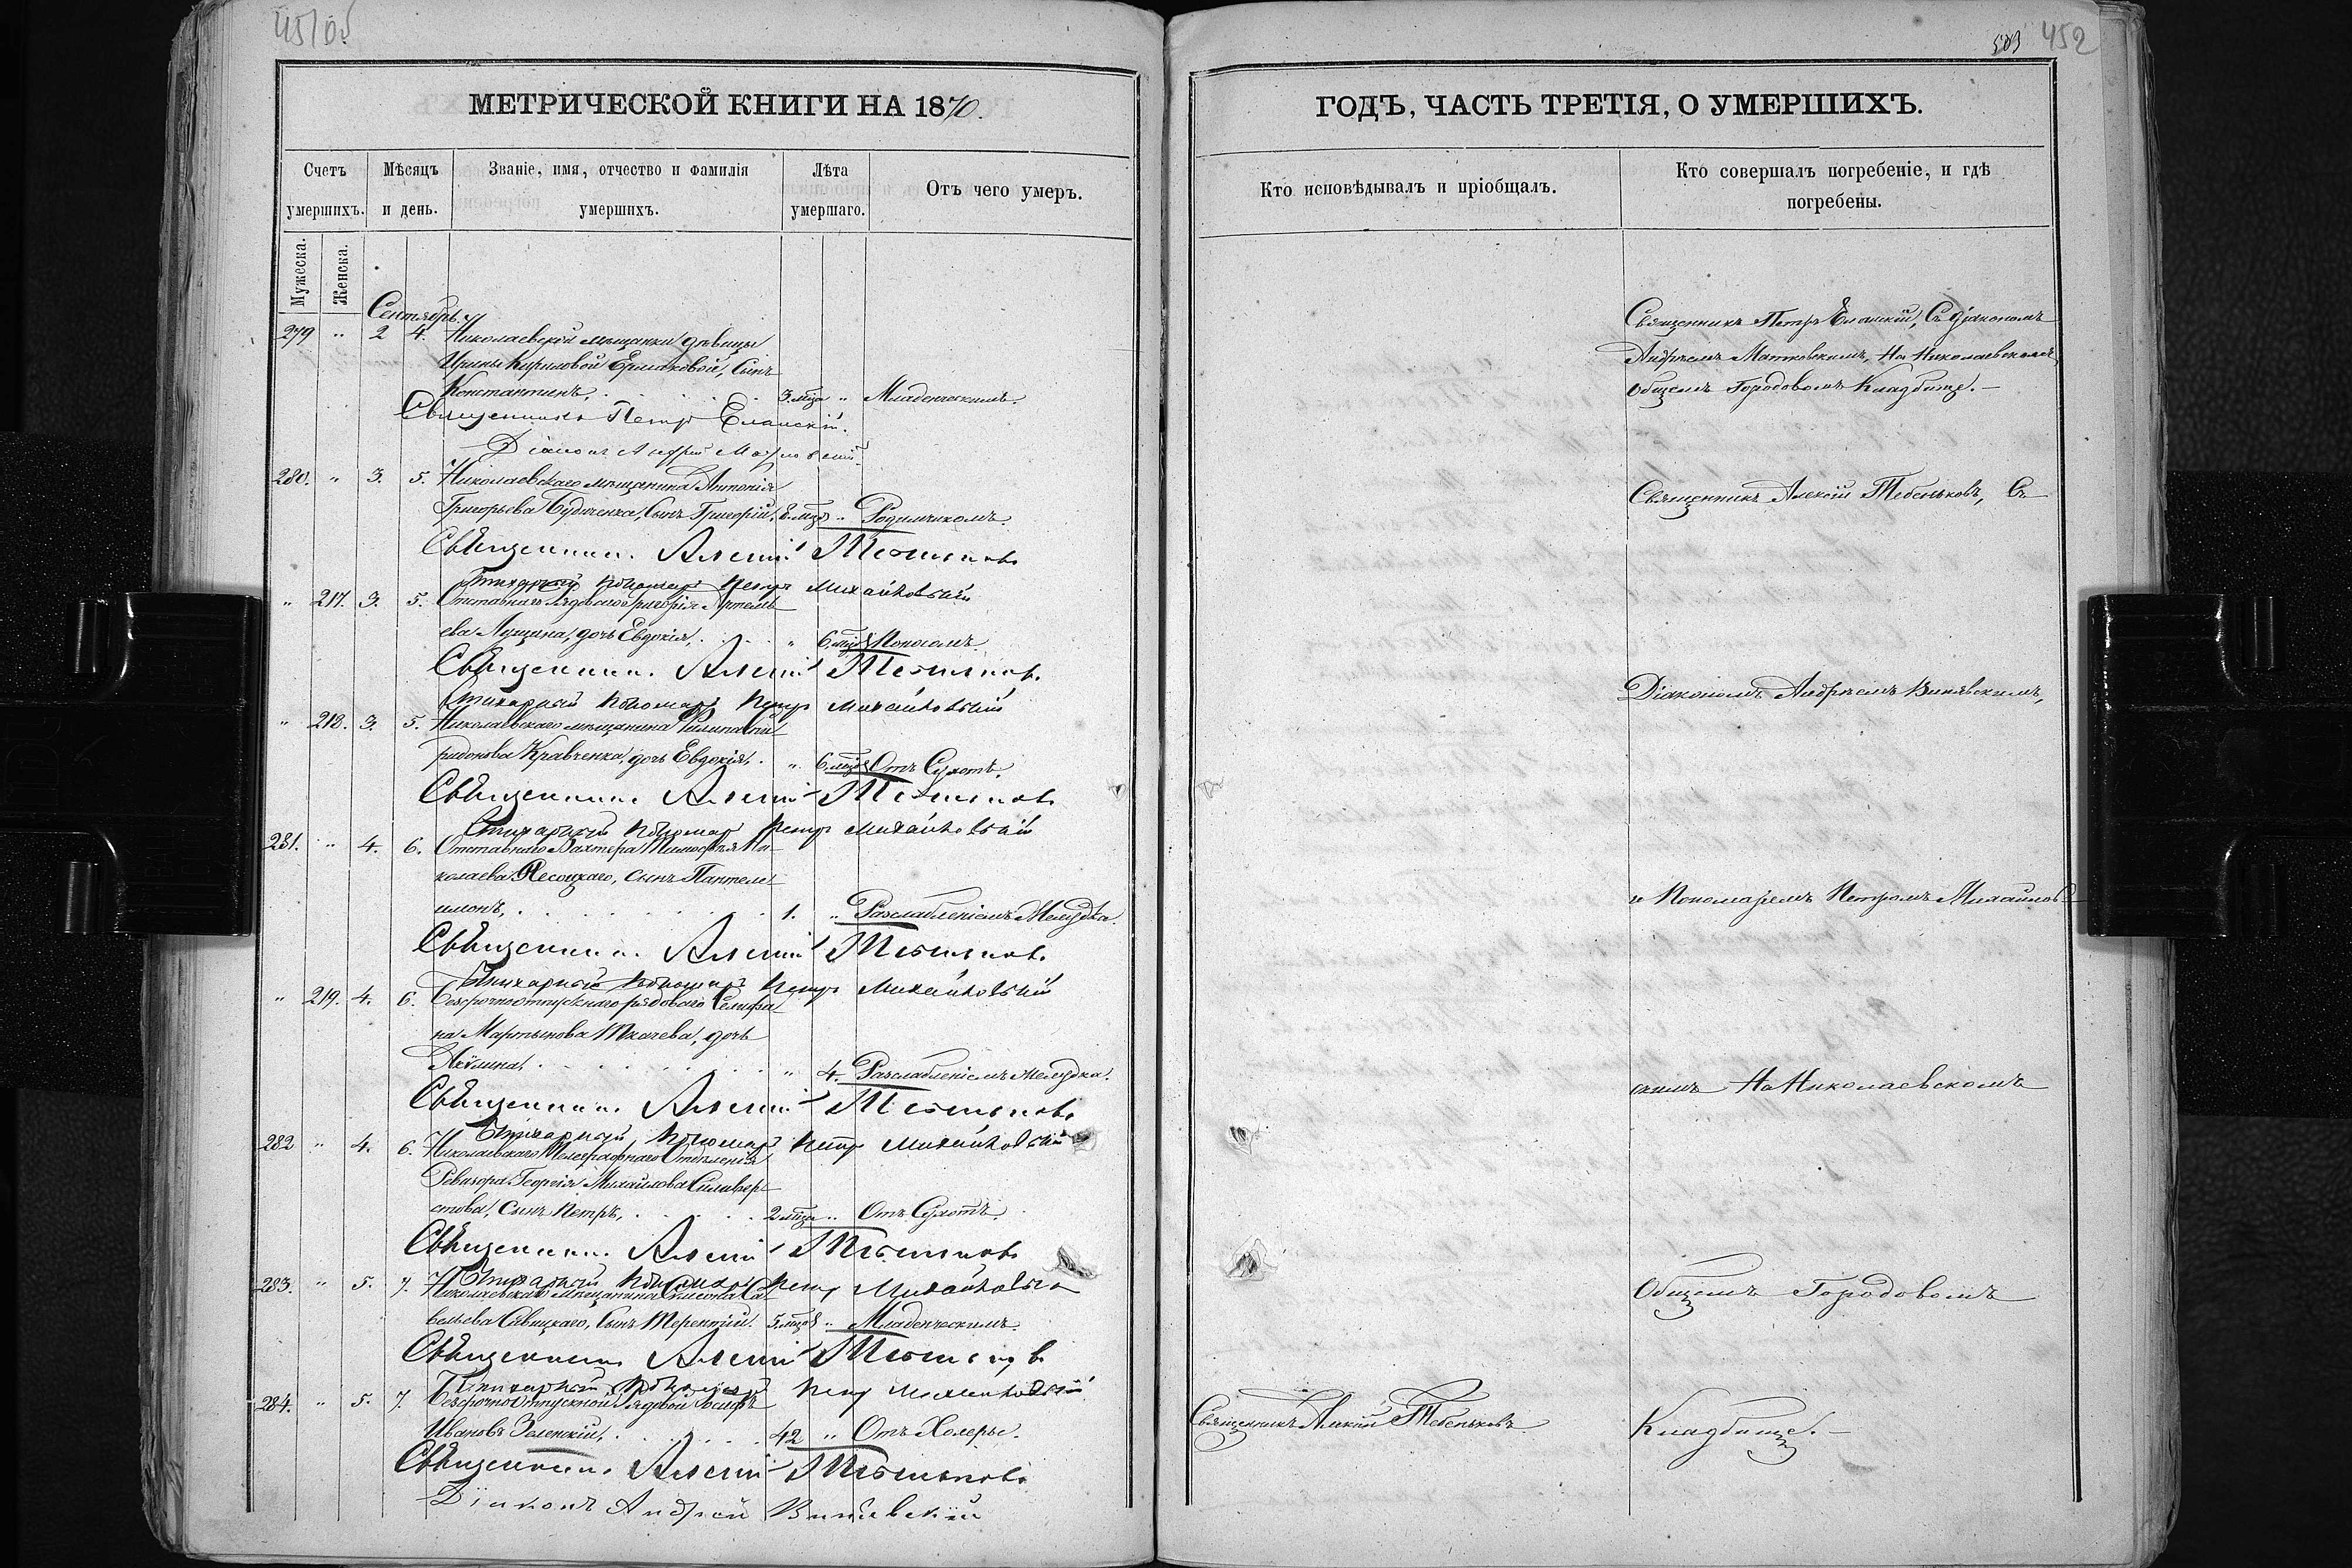 451об
МЕТРИЧЕСКОЙ КНИГИ НА 1870.
Счетъ умершихъ.
Мѣсяцъ и день.
Званіе, имя, отчество и фамилія умершихъ.
Лѣта умершаго.
Отъ чего умеръ.
Мужеска.
Женска.
Сентябрь.
279 " 2 4. Николаевской мѣщанки дѣвицы
Ирины Кириловой Ермаковой, Сынъ
Константинъ, 3. мца " Младенческимъ.
Священникъ Петръ Еланскій.
Діаконъ Андрей
280. " 3. 5. Николаевскаго мѣщанина Антонія
Григорьева Будченка, Сынъ Григорій, 8. мцов " Родимчикомъ.
Священникъ Алексій Тебеньковъ
Стихарный Пономарь Петръ Михайловскій
" 217. 3. 5. Отставнаго рядоваго Григорія Артемь
ева Лущина, дочь Евдокія, " 6. мцов Поносомъ.
Священникъ Алексій Тебеньковъ
Стихарный Пономарь Петръ Михайловскій
" 218. 3. 5. Николаевскаго мѣщанина Филипа Спи
ридонова Кравченка, дочь Евдокія, " 6. мцов Отъ Сухотъ.
Священникъ Алексій Тебеньковъ
Стихарный Пономарь Петръ Михайловскій
281. " 4. 6. Отставнаго Вахтера Тимофѣя Ни
колаева Песоцкаго, сынъ Пантеле
имонъ, 1. " Разслабленіемъ Желудка.
Священникъ Алексій Тебеньковъ
Стихарный Пономарь Петръ Михайловскій
" 219. 4. 6. Безсрочноотпускнаго рядоваго Селифа
на Мартынова Ткачева, дочь
Акулина, " 4. Разслабленіемъ Желудка.
Священникъ Алексій Тебеньковъ
Стихарный Пономарь Петръ Михайловскій
282 " 4. 6. Николаевскаго Телеграфнаго Отдѣленія
Ревизора Георгія Михайлова Сильвер
стова, Сынъ Петръ, 2 мца " Отъ Сухотъ.
Священникъ Алексій Тебеньковъ
Стихарный Пономарь Петръ Михайловскій
283. " 5. 7. Николаевскаго мѣщанина Симеона Са
вельева Савицкаго, Сынъ Терентій. 5. мцов " Младенческимъ.
Священникъ Алексій Тебеньковъ
Стихарный Пономарь Петръ Михайловскій
284. " 5. 7. Безсрочноотпускной Рядовой Іосифъ
Ивановъ Зеленскій, 42 " Отъ Холеры.
Священникъ Алексій Тебеньковъ
Діаконъ Андрей Винявскій
503 452
ГОДЪ, ЧАСТЬ ТРЕТІЯ, О УМЕРШИХЪ.
Кто исповѣдывалъ и пріобщалъ.
Кто совершалъ погребеніе, и гдѣ
погребены.
Священникъ Петръ Еланскій, Съ діакономъ
Андреемъ Матковскимъ, На Николаевскомъ
Общемъ Городовомъ Кладбище.
Священникъ Алексій Тебеньковъ, Съ
Діакономъ Андреемъ Винявскимъ,
и Пономаремъ Петромъ Михайлов
скимъ На Николаевскомъ
Общемъ Городовомъ
Священникъ Алексій Тебеньковъ
Кладбище.